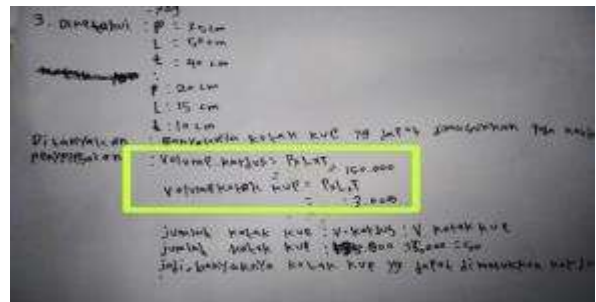 3. Diketahui : P = 75 cm
L = 50 cm
t = 40 cm
P : 20 cm
L : 15 cm
t : 10 cm
Ditanyakan : Banyaknya kotak kue yg dapat dimasukkan
penyelesaian : Volume kardus = PxLxT
= 150.000
Volume kotak kue = PxLxT
= 3.000
jumlah kotak kue : V. kardus : V kotak kue
jumlah kotak kue :
jadi, banyaknya kotak kue yg dapat dimasukkan